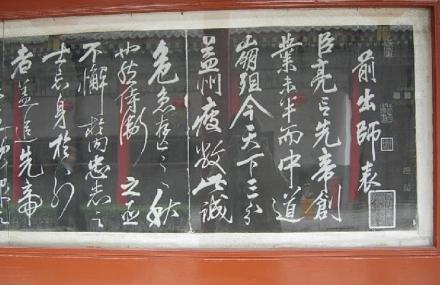 前出師表
臣亮言先帝創
業未半而中道
崩殂今天下三分
益州疲敝此誠
危急存亡之秋
也然侍衛之臣
不懈於內忠志之
士忘身於外
者蓋追先帝